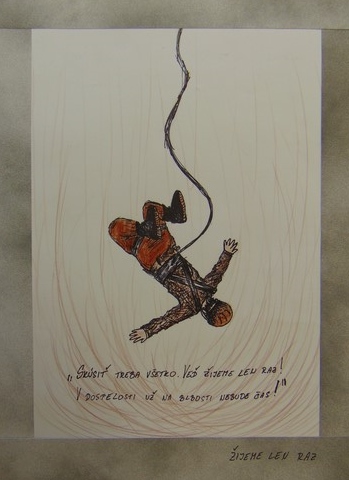 „Skúsiť treba všetko. Veď žijeme len raz!
V dospelosti už na blbosti nebude čas!"
Žijeme len raz